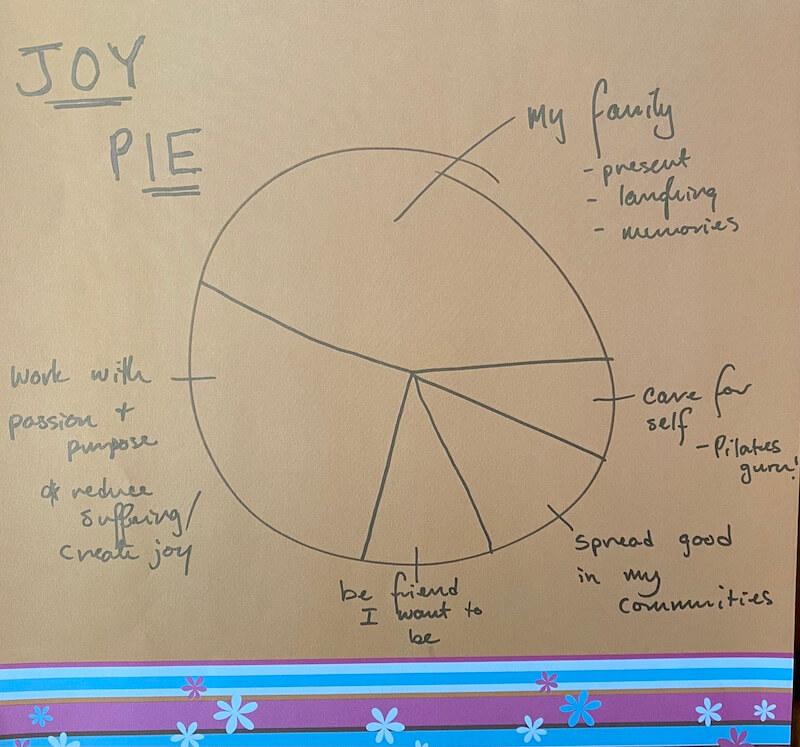 JOY
PIE
My family
- present
- laughing
- memories
Work with
passion +
purpose
* reduce
suffering/
create joy
care for
self
- Pilates
guru!
spread good
in my
communities
be friend
I want to
be